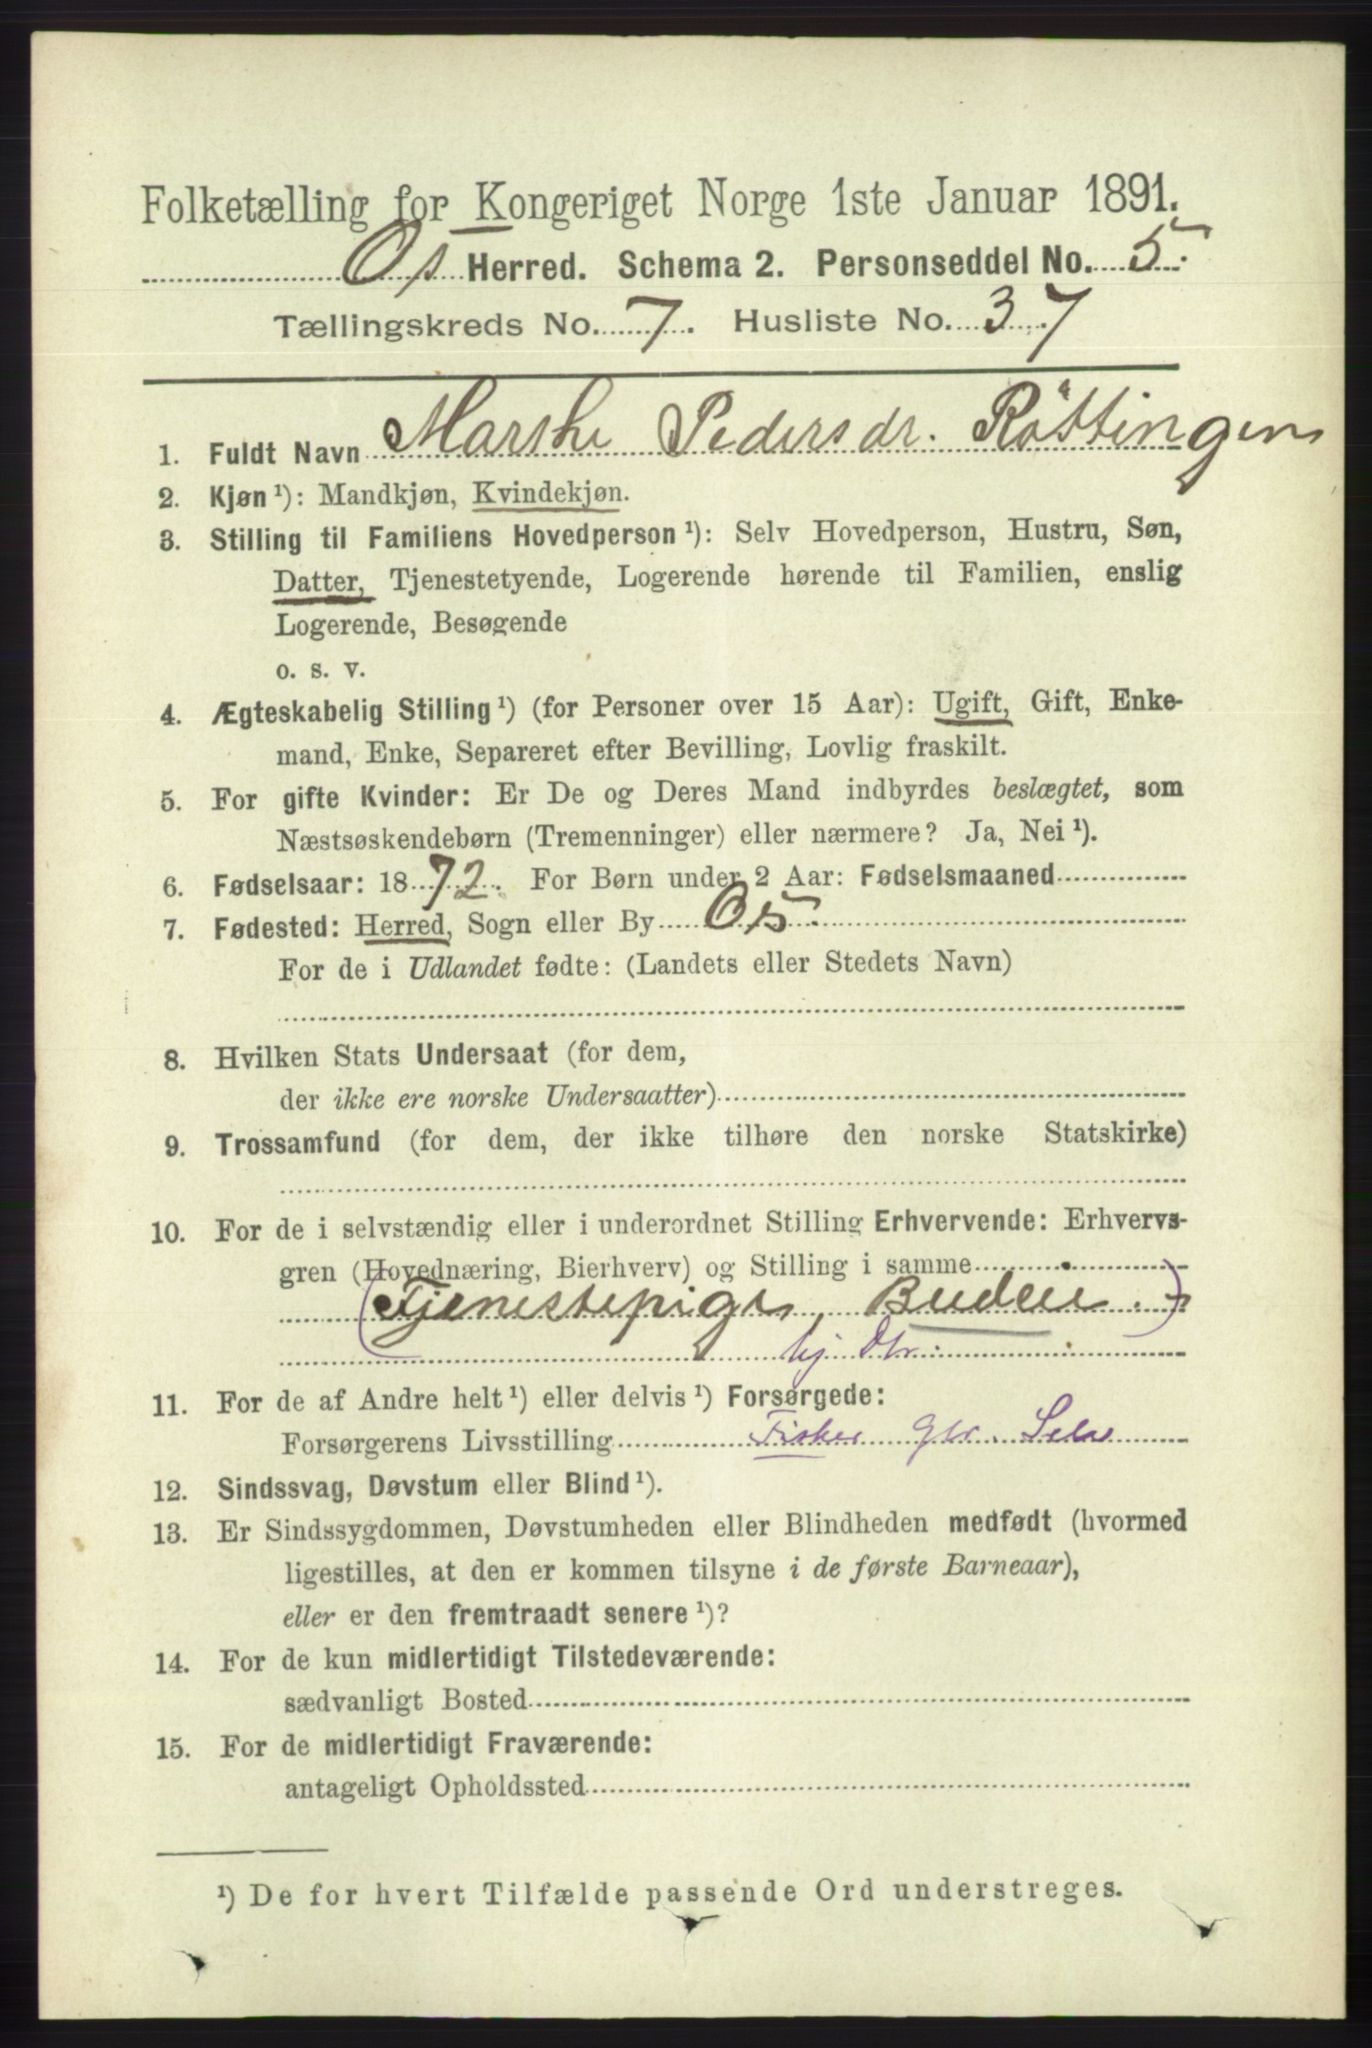 Folketælling for Kongeriget Norge 1ste Januar 1891.
Os Herred. Schema 2. Personseddel No. 5.
Tællingskreds No. 7. Husliste No. 37
1. Fuldt Navn Marthe Pedersdr. Röttingen
2. Kjøn ¹): Mandkjøn, Kvindekjøn.
3. Stilling til Familiens Hovedperson ¹): Selv Hovedperson, Hustru, Søn,
Datter, Tjenestetyende, Logerende hørende til Familien, enslig
Logerende, Besøgende
o. s. v.
4. Ægteskabelig Stilling ¹) (for Personer over 15 Aar): Ugift, Gift, Enke-
mand, Enke, Separeret efter Bevilling, Lovlig fraskilt.
5. For gifte Kvinder: Er De og Deres Mand indbyrdes beslægtet, som
Næstsøskendebørn (Tremenninger) eller nærmere? Ja, Nei ¹).
6. Fødselsaar: 1872. For Børn under 2 Aar: Fødselsmaaned
7. Fødested: Herred, Sogn eller By Os.
For de i Udlandet fødte: (Landets eller Stedets Navn)
8. Hvilken Stats Undersaat (for dem,
der ikke ere norske Undersaatter)
9. Trossamfund (for dem, der ikke tilhøre den norske Statskirke)
10. For de i selvstændig eller i underordnet Stilling Erhvervende: Erhvervs-
gren (Hovednæring, Bierhverv) og Stilling i samme
(Tjenestepige, Budeie.)
hj. Dtr.
11. For de af Andre helt ¹) eller delvis ¹) Forsørgede:
Forsørgerens Livsstilling Fisker Gbr. Selv
12. Sindssvag, Døvstum eller Blind ¹).
13. Er Sindssygdommen, Døvstumheden eller Blindheden medfødt (hvormed
ligestilles, at den er kommen tilsyne i de første Barneaar),
eller er den fremtraadt senere ¹)?
14. For de kun midlertidigt Tilstedeværende:
sædvanligt Bosted
15. For de midlertidigt Fraværende:
antageligt Opholdssted
¹) De for hvert Tilfælde passende Ord understreges.